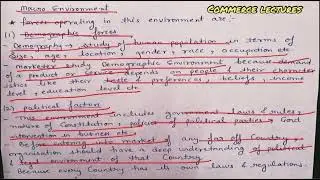 Macro Environment
COMMERCE LECTURES
* Forces operating in this environment are :-
(1) Demographic forces
Demography :- study of human population in terms of
Size, age, location, gender, race, occupation etc
Marketer study Demographic Environment because demand
of a product or service depends on people & their character
istics like their taste & preferences, beliefs, income
level, education level etc
(2) political factors
This environment includes government laws & rules,
nature of Constitution, policies of political parties, Govt
intervention in business etc.
Before entering into market of any far off Country,
organisation should have deep understanding of political
& legal environment of that Country.
Because every Country has its own laws & regulations.